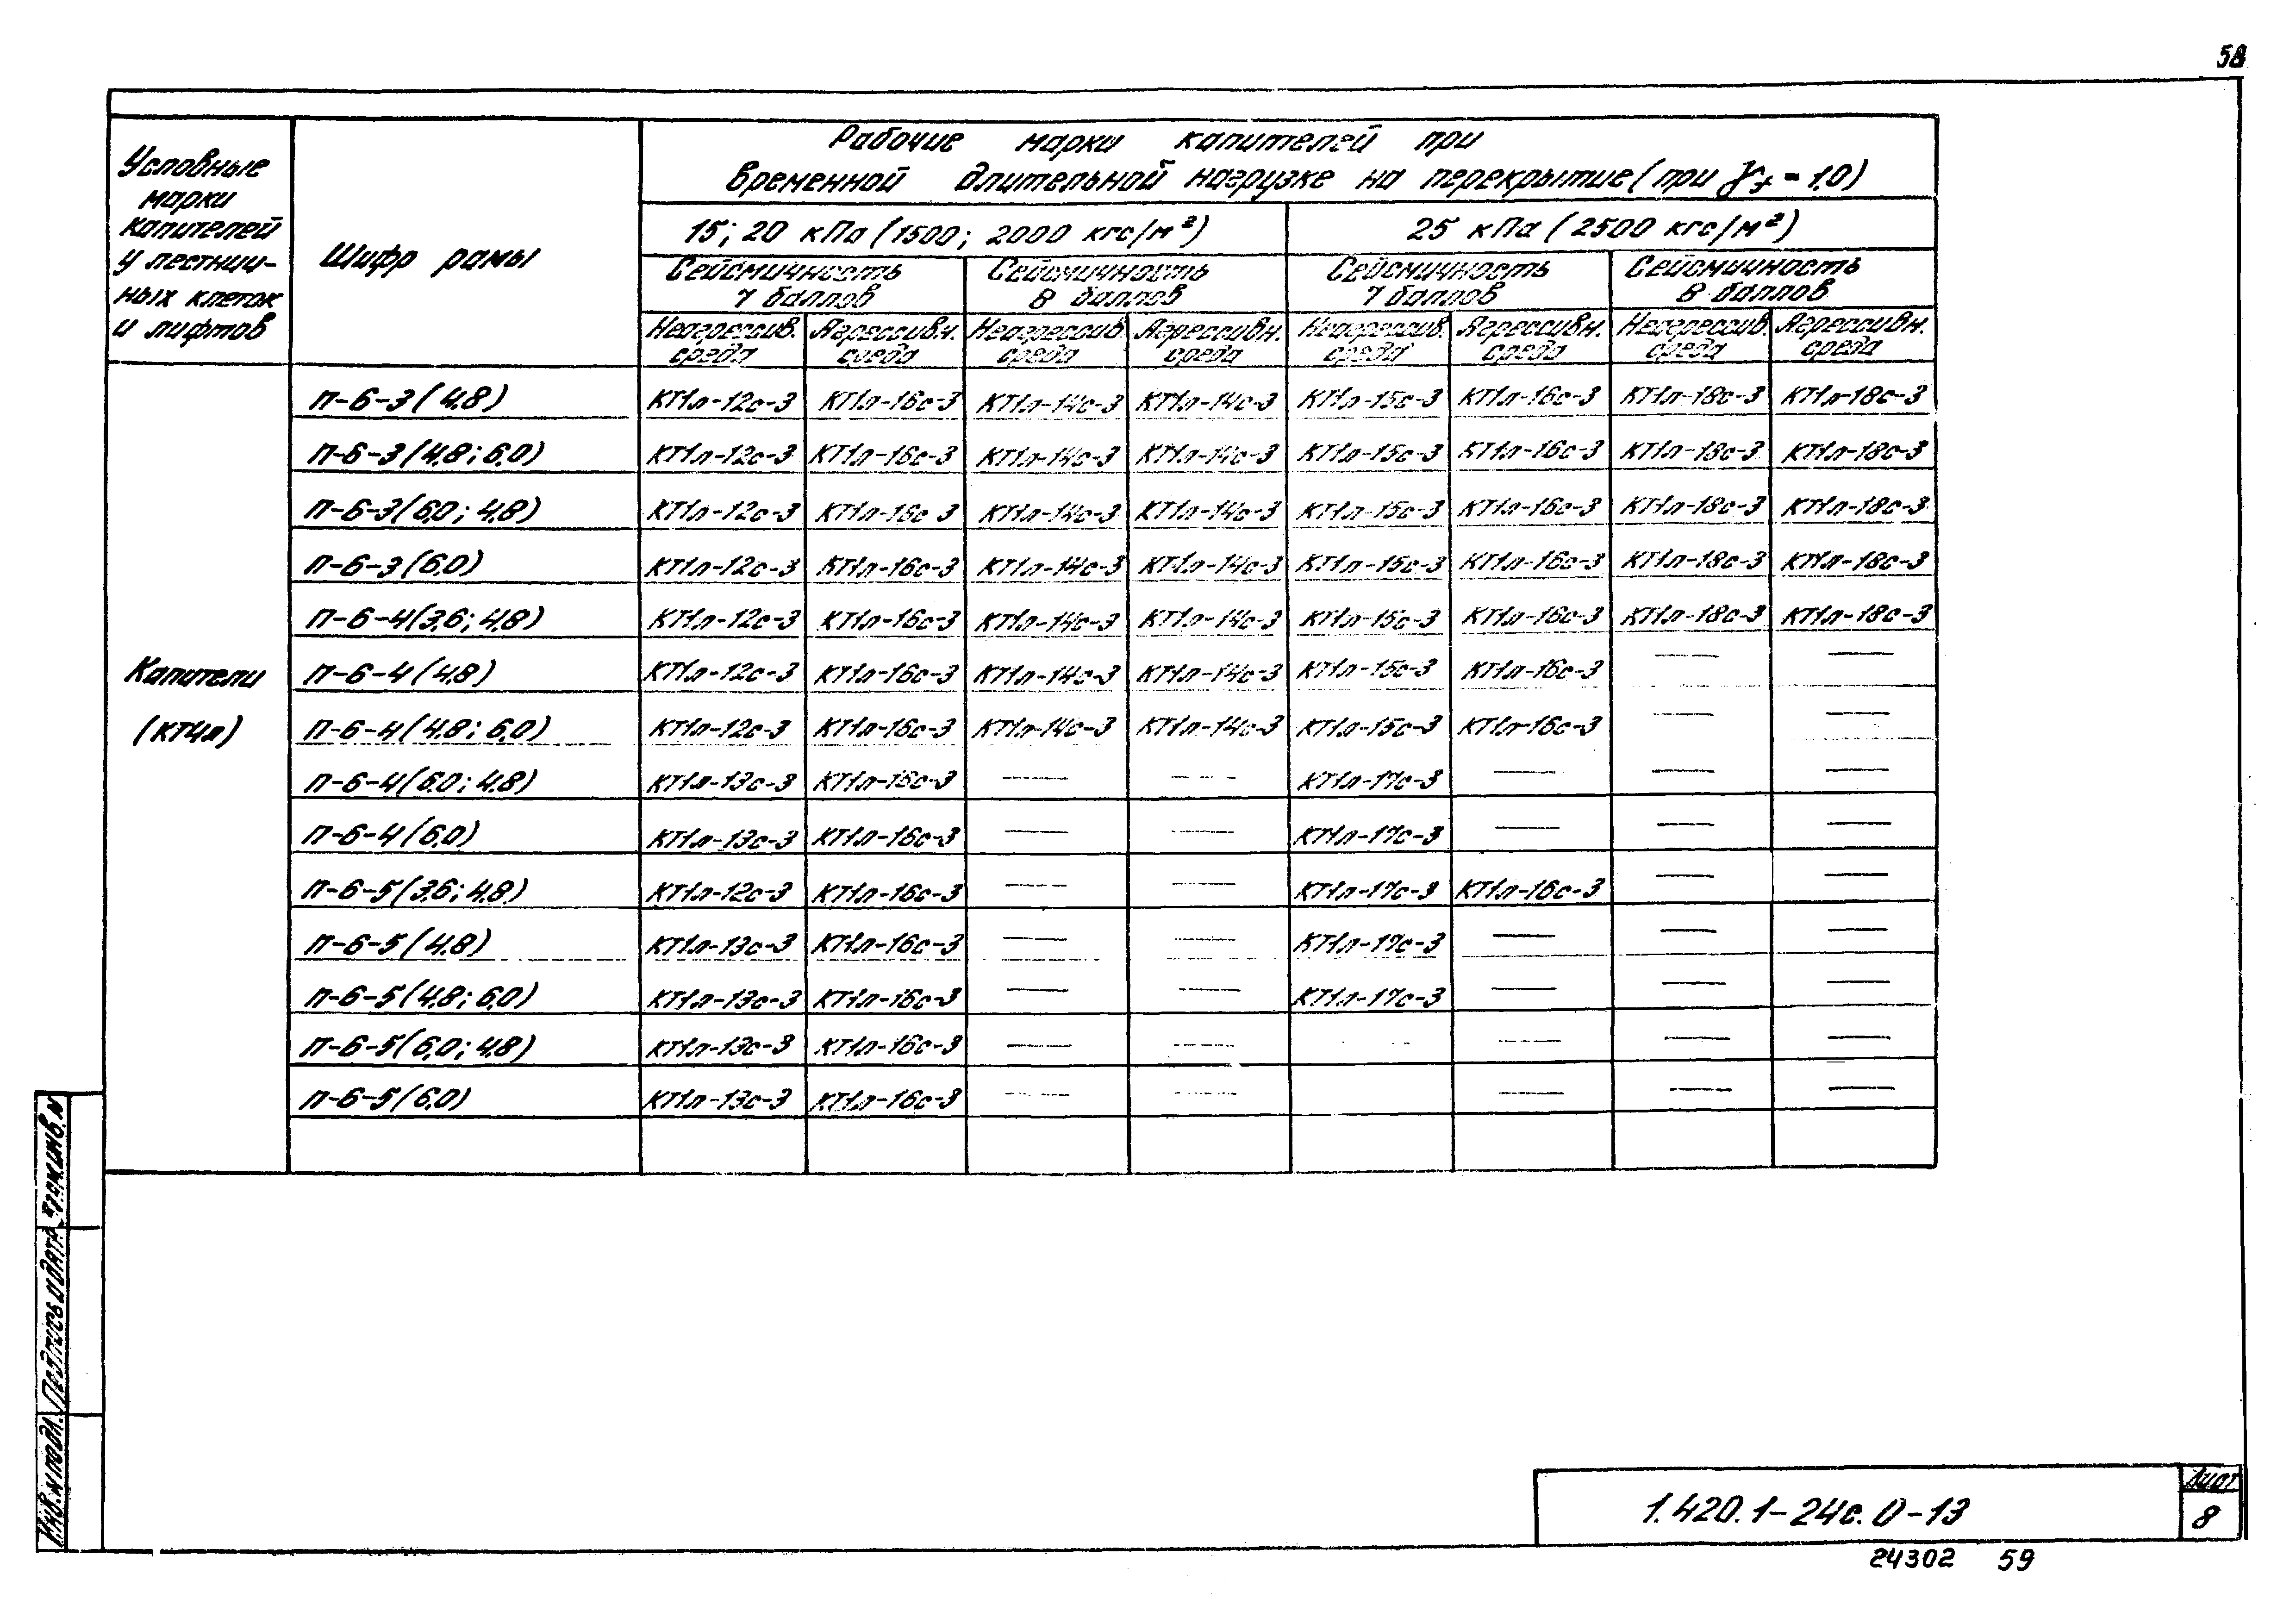 58
Условные
марки
капителей
у лестнич-
ных клеток
и лифтов
Шифр рамы
Рабочие марки капителей при
временной длительной нагрузке на перекрытие (при γf = 1,0)
15; 20 кПа (1500; 2000 кгс/м²)
25 кПа (2500 кгс/м²)
Сейсмичность
7 баллов
Сейсмичность
8 баллов
Сейсмичность
7 баллов
Сейсмичность
8 баллов
Неагрессив. среда
Агрессивн. среда
Неагрессив. среда
Агрессивн. среда
Неагрессив. среда
Агрессивн. среда
Неагрессив. среда
Агрессивн. среда
Капители
(КТ4л)
П-6-3 (4,8) КТ1л-12с-3 КТ1л-16с-3 КТ1л-14с-3 КТ1л-14с-3 КТ1л-15с-3 КТ1л-16с-3 КТ1л-18с-3 КТ1л-18с-3
П-6-3 (4,8; 6,0) КТ1л-12с-3 КТ1л-16с-3 КТ1л-14с-3 КТ1л-14с-3 КТ1л-15с-3 КТ1л-16с-3 КТ1л-18с-3 КТ1л-18с-3
П-6-3 (6,0; 4,8) КТ1л-12с-3 КТ1л-16с-3 КТ1л-14с-3 КТ1л-14с-3 КТ1л-15с-3 КТ1л-16с-3 КТ1л-18с-3 КТ1л-18с-3
П-6-3 (6,0) КТ1л-12с-3 КТ1л-16с-3 КТ1л-14с-3 КТ1л-14с-3 КТ1л-15с-3 КТ1л-16с-3 КТ1л-18с-3 КТ1л-18с-3
П-6-4 (3,6; 4,8) КТ1л-12с-3 КТ1л-16с-3 КТ1л-14с-3 КТ1л-14с-3 КТ1л-15с-3 КТ1л-16с-3 КТ1л-18с-3 КТ1л-18с-3
П-6-4 (4,8) КТ1л-12с-3 КТ1л-16с-3 КТ1л-14с-3 КТ1л-14с-3 КТ1л-15с-3 КТ1л-16с-3 — —
П-6-4 (4,8; 6,0) КТ1л-12с-3 КТ1л-16с-3 КТ1л-14с-3 КТ1л-14с-3 КТ1л-15с-3 КТ1л-16с-3 — —
П-6-4 (6,0; 4,8) КТ1л-13с-3 КТ1л-16с-3 — — КТ1л-17с-3 — — —
П-6-4 (6,0) КТ1л-13с-3 КТ1л-16с-3 — — КТ1л-17с-3 — — —
П-6-5 (3,6; 4,8) КТ1л-12с-3 КТ1л-16с-3 — — КТ1л-17с-3 КТ1л-16с-3 — —
П-6-5 (4,8) КТ1л-13с-3 КТ1л-16с-3 — — КТ1л-17с-3 — — —
П-6-5 (4,8; 6,0) КТ1л-13с-3 КТ1л-16с-3 — — КТ1л-17с-3 — — —
П-6-5 (6,0; 4,8) КТ1л-13с-3 КТ1л-16с-3 — — — — — —
П-6-5 (6,0) КТ1л-13с-3 КТ1л-16с-3 — — — — —
Инв. № подл. Подпись и дата Взам. инв. №
1.420.1-24с.0-13
Лист
8
24302 59